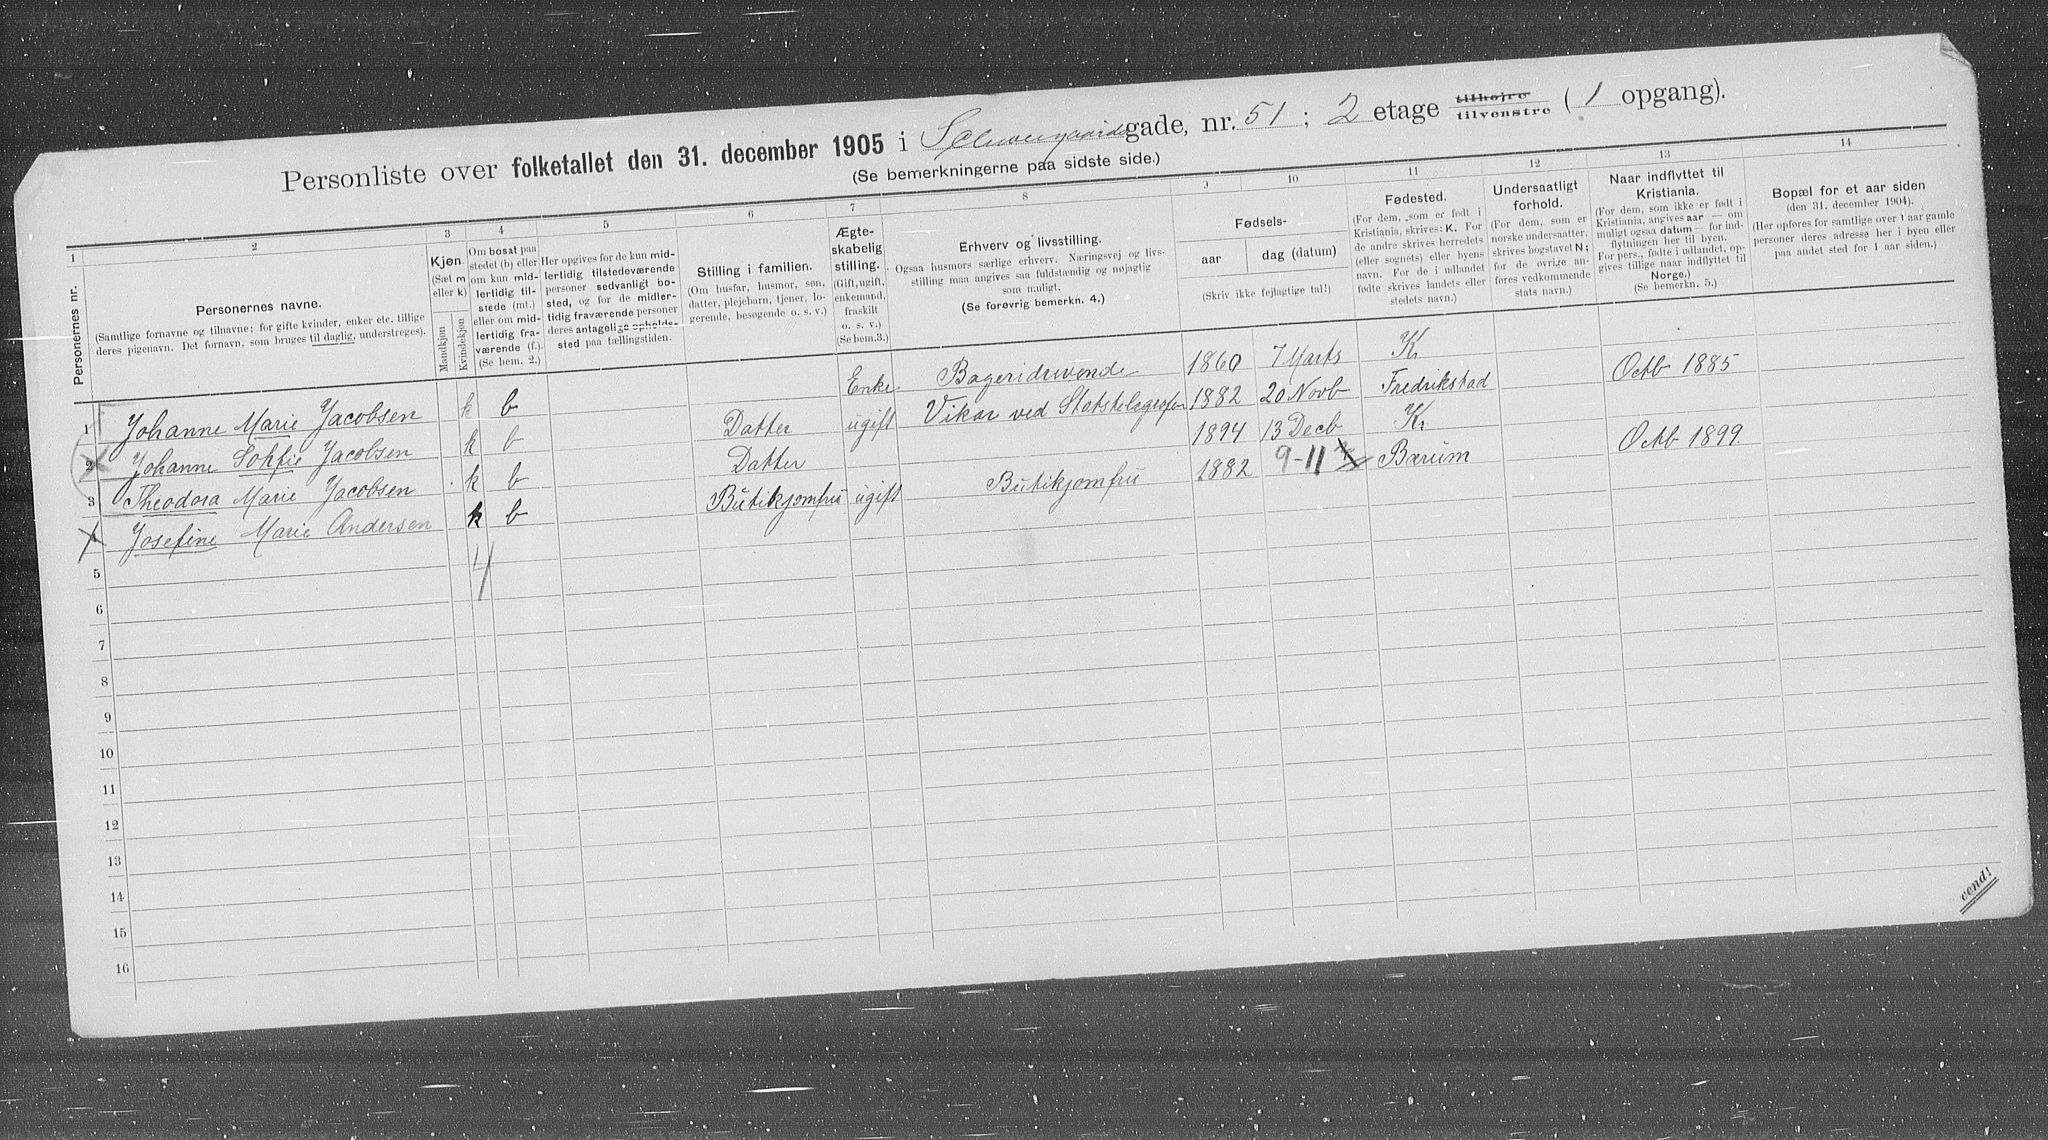 Personliste over folketallet den 31. december 1905 i Schweigaardsgade, nr. 51; 2 etage tilhøjre tilvenstre (1 opgang).
(Se bemerkningerne paa sidste side.)
1 2 3 4 5 6 7 8 9 10 11 12 13 14
Personernes nr.
Personernes navne.
(Samtlige fornavne og tilnavne; for gifte kvinder, enker etc. tillige
deres pigenavn. Det fornavn, som bruges til daglig, understreges).
Kjøn.
(Sæt m
eller k)
Mandkjøn
Kvindekjøn
Om bosat paa
stedet (b) eller
om kun mid-
lertidig til-
stede (mt.)
eller om mid-
lertidig fra-
værende (f.).
(Se bem. 2.)
Her opgives for de kun mid-
lertidig tilstedeværende
personer sedvanligt bo-
sted, og for de midler-
tidig fraværende personer
deres antagelige opholds-
sted paa tællingstiden.
Stilling i familien.
(Om husfar, husmor, søn,
datter, plejebarn, tjener, lo-
gerende, besøgende o. s. v.)
Ægte-
skabelig
stilling.
(Gift, ugift,
enkemand,
fraskilt
o. s. v.)
(Se bem.3.)
Erhverv og livsstilling.
Ogsaa husmors særlige erhverv. Næringsvej og livs-
stilling maa angives saa fuldstændig og nøjagtig
som muligt.
(Se forøvrig bemerkn. 4.)
Fødsels-
aar
dag (datum)
(Skriv ikke fejlagtige tal!)
Fødested.
(For dem, som er født i
Kristiania, skrives: K. For
de andre skrives herredets
(eller sognets) eller byens
navn. For de i udlandet
fødte skrives landets eller
stedets navn.)
Undersaatligt
forhold.
(For dem, som er
norske undersaatter,
skrives bogstavet N;
for de øvrige an-
føres vedkommende
stats navn.)
Naar indflyttet til
Kristiania.
(For dem, som ikke er født i
Kristiania, angives aar — om
muligt ogsaa datum — for ind-
flytningen her til byen.
For pers., fødte i udlandet, op-
gives tillige naar indflyttet til
Norge.)
(Se bemerkn. 5.)
Bopæl for et aar siden
(den 31. december 1904).
(Her opføres for samtlige over 1 aar gamle
personer deres adresse her i byen eller
paa andet sted for 1 aar siden.)
1 Johanne Marie Jacobsen k b Enke Bageridrivende 1860 7 Marts K.
2 Johanne Sofie Jacobsen k b Datter ugift Vikar ved Statstelegrafen 1882 20 Novb Fredrikstad Octb 1885
3 Theodora Marie Jacobsen k b Datter 1894 13 Decb K.
4 Josefine Marie Andersen k b Butikjomfru ugift Butikjomfru 1882 9-11 Bærum Octb 1899.
4
5
6
7
8
9
10
11
12
13
14
15
16
vend!